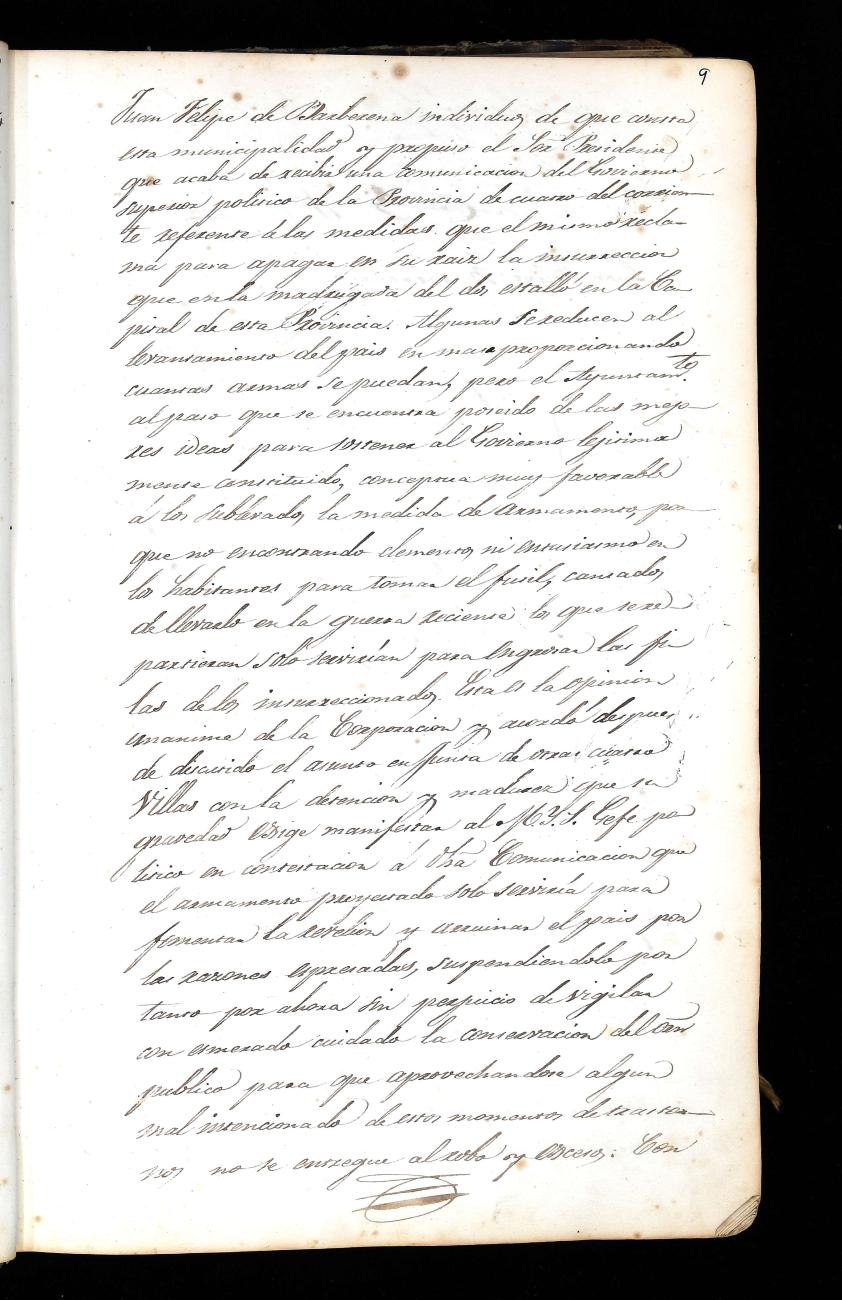 9
Juan Felipe de Barberena individuos de que consta
esta municipalidad y propuso el Sor Presidente
que acaba de recibir una comunicacion del Govierno
superior politico de la Provincia de cuatro del corrien-
te referente á las medidas que el mismo recla-
ma para apagar en su raiz la insurreccion
que en la madrugada del dos estalló en la Ca-
pital de esta Provincia. Algunas se reducen al
levantamiento del pais en masa proporcionando
cuantas armas se puedan, pero el Ayuntamto.
al paso que se encuentra poseido de las mejo-
res ideas para sostener al Govierno lejitima
mente constituido, conceptua muy favorable
á los sublevados la medida de armamento, por-
que no encontrando elementos ni entusiasmo en
los habitantes para tomar el fusil, cansados
de llevarlo en la guerra reciente los que se re-
partieran solo servirían para engrosar las fi-
las de los insurreccionados. Esta es la opinion
unanime de la Corporacion y acordó despues
de discutido el asunto en Junta de otras cuatro
Villas con la detencion y madurez que su
gravedad exige manifestar al M.Y.S. Gefe po
litico en contestacion á dha Comunicacion que
el armamento proyectado solo serviría para
fomentar la revelion y arruinar el pais por
las razones espresadas, suspendiendolo por
tanto por ahora sin perjuicio de vigilar
con esmerado cuidado la conservacion del orn
publico para que aprovechandose algun
mal intencionado de estos momentos de trastor-
nos no se entregue al robo y escesos: Con